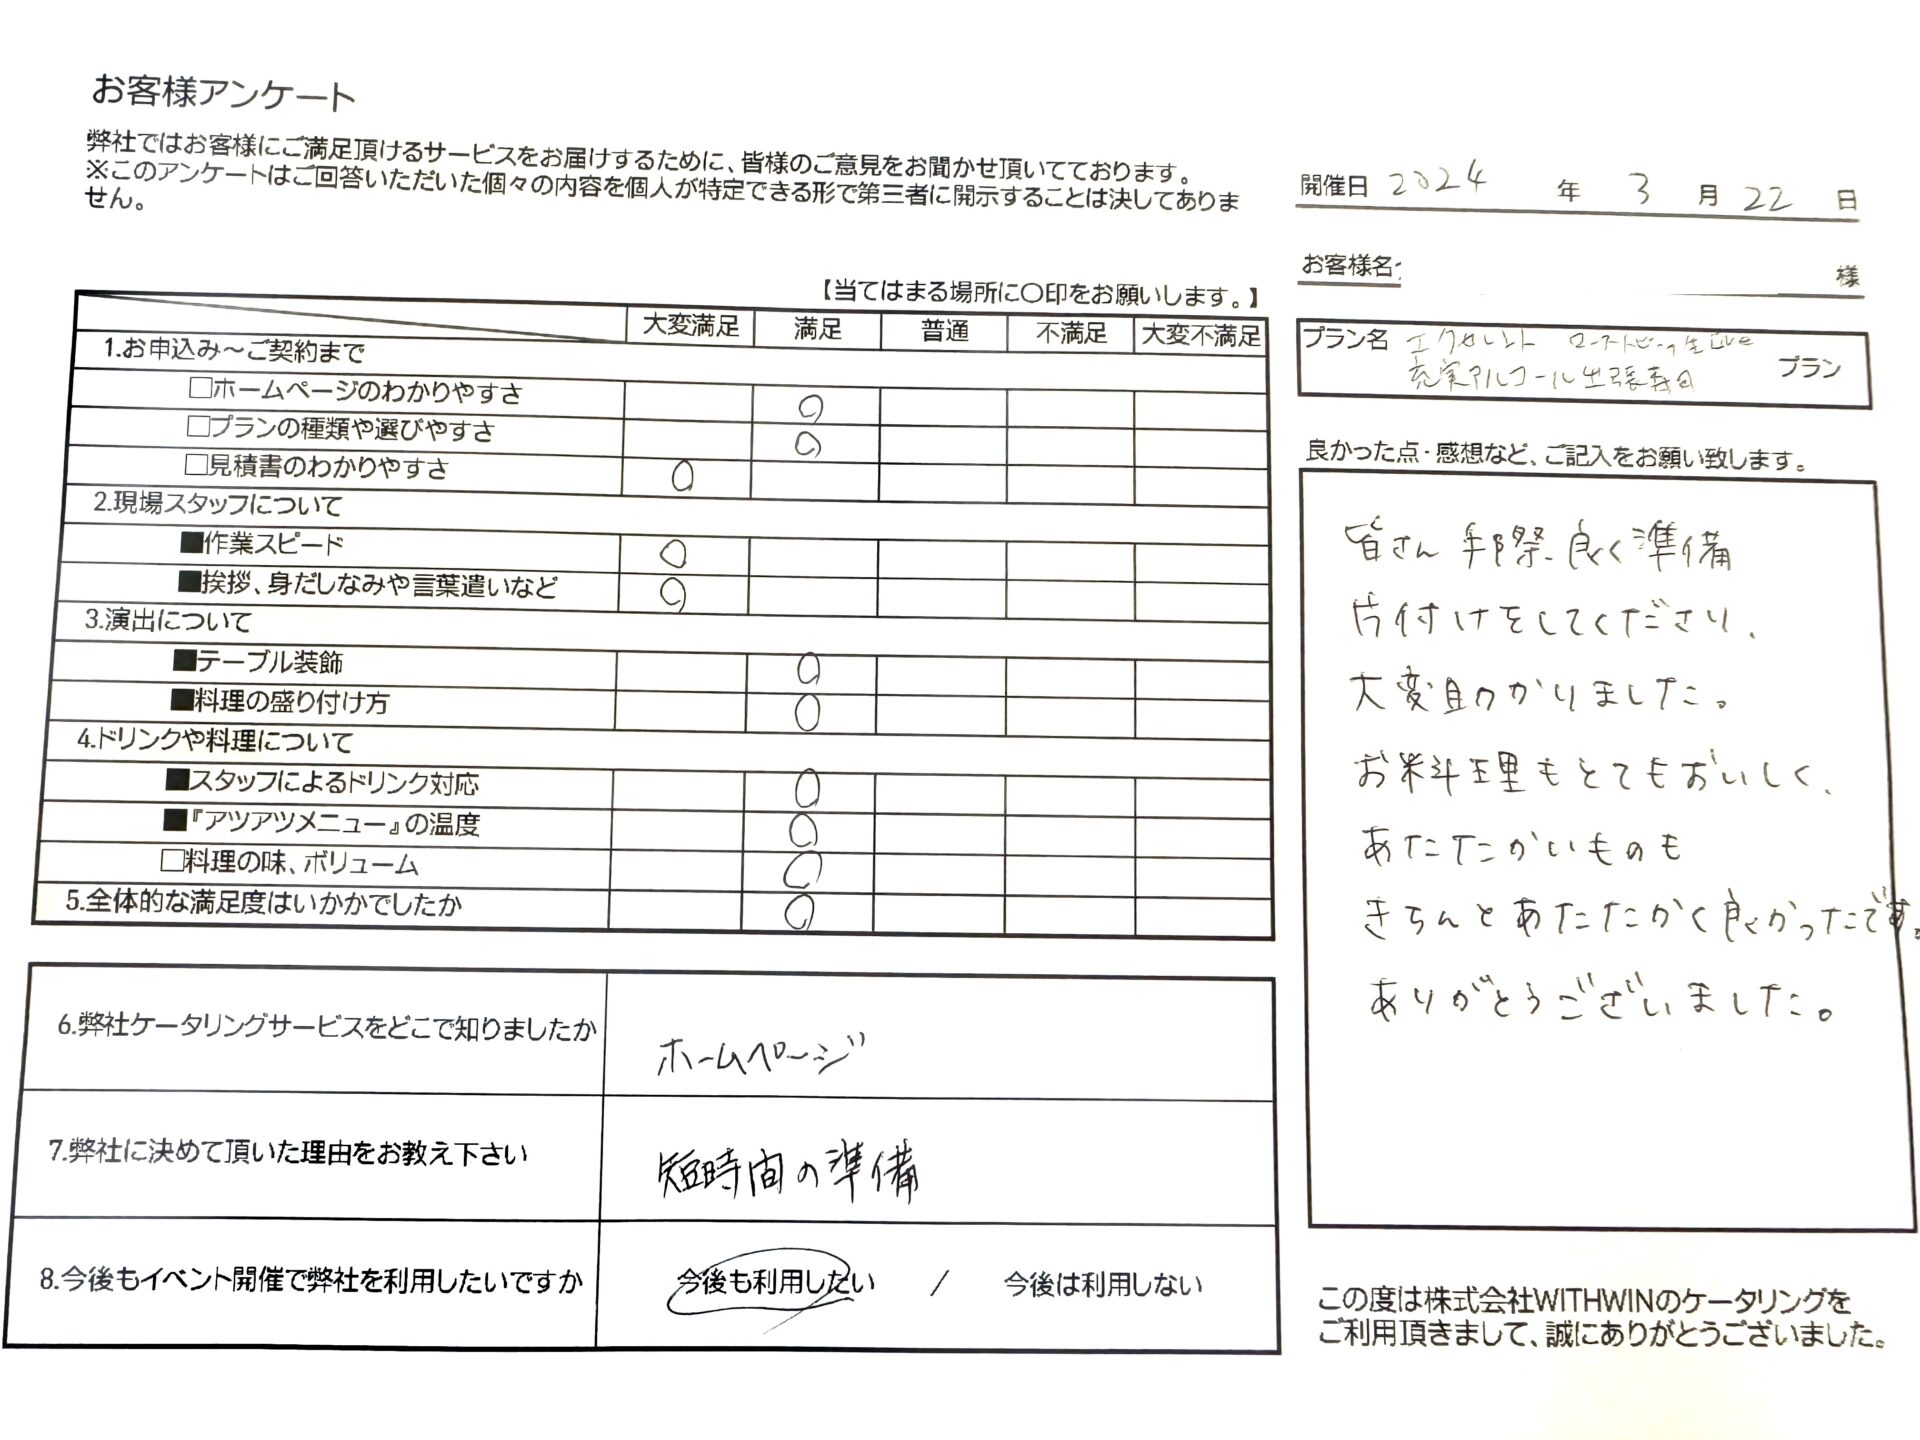 お客様アンケート
弊社ではお客様にご満足頂けるサービスをお届けするために、皆様のご意見をお聞かせ頂いてております。
※このアンケートはご回答いただいた個々の内容を個人が特定できる形で第三者に開示することは決してありま
せん。
【当てはまる場所に〇印をお願いします。】
大変満足 満足 普通 不満足 大変不満足
1.お申込み～ご契約まで
□ホームページのわかりやすさ ○
□プランの種類や選びやすさ ○
□見積書のわかりやすさ ○
2.現場スタッフについて
■作業スピード ○
■挨拶、身だしなみや言葉遣いなど ○
3.演出について
■テーブル装飾 ○
■料理の盛り付け方 ○
4.ドリンクや料理について
■スタッフによるドリンク対応 ○
■『アツアツメニュー』の温度 ○
□料理の味、ボリューム ○
5.全体的な満足度はいかかでしたか ○
6.弊社ケータリングサービスをどこで知りましたか ホームページ
7.弊社に決めて頂いた理由をお教え下さい 短時間の準備
8.今後もイベント開催で弊社を利用したいですか 今後も利用したい / 今後は利用しない
開催日 2024 年 3 月 22 日
お客様名: 様
プラン名 エクセレント ローストビーフ Live
充実アルコール 出張寿司 プラン
良かった点・感想など、ご記入をお願い致します。
皆さん 手際良く準備
片付けをしてくださり、
大変助かりました。
お料理もとてもおいしく、
あたたかいものも
きちんとあたたかく良かったです。
ありがとうございました。
この度は株式会社WITHWINのケータリングを
ご利用頂きまして、誠にありがとうございました。